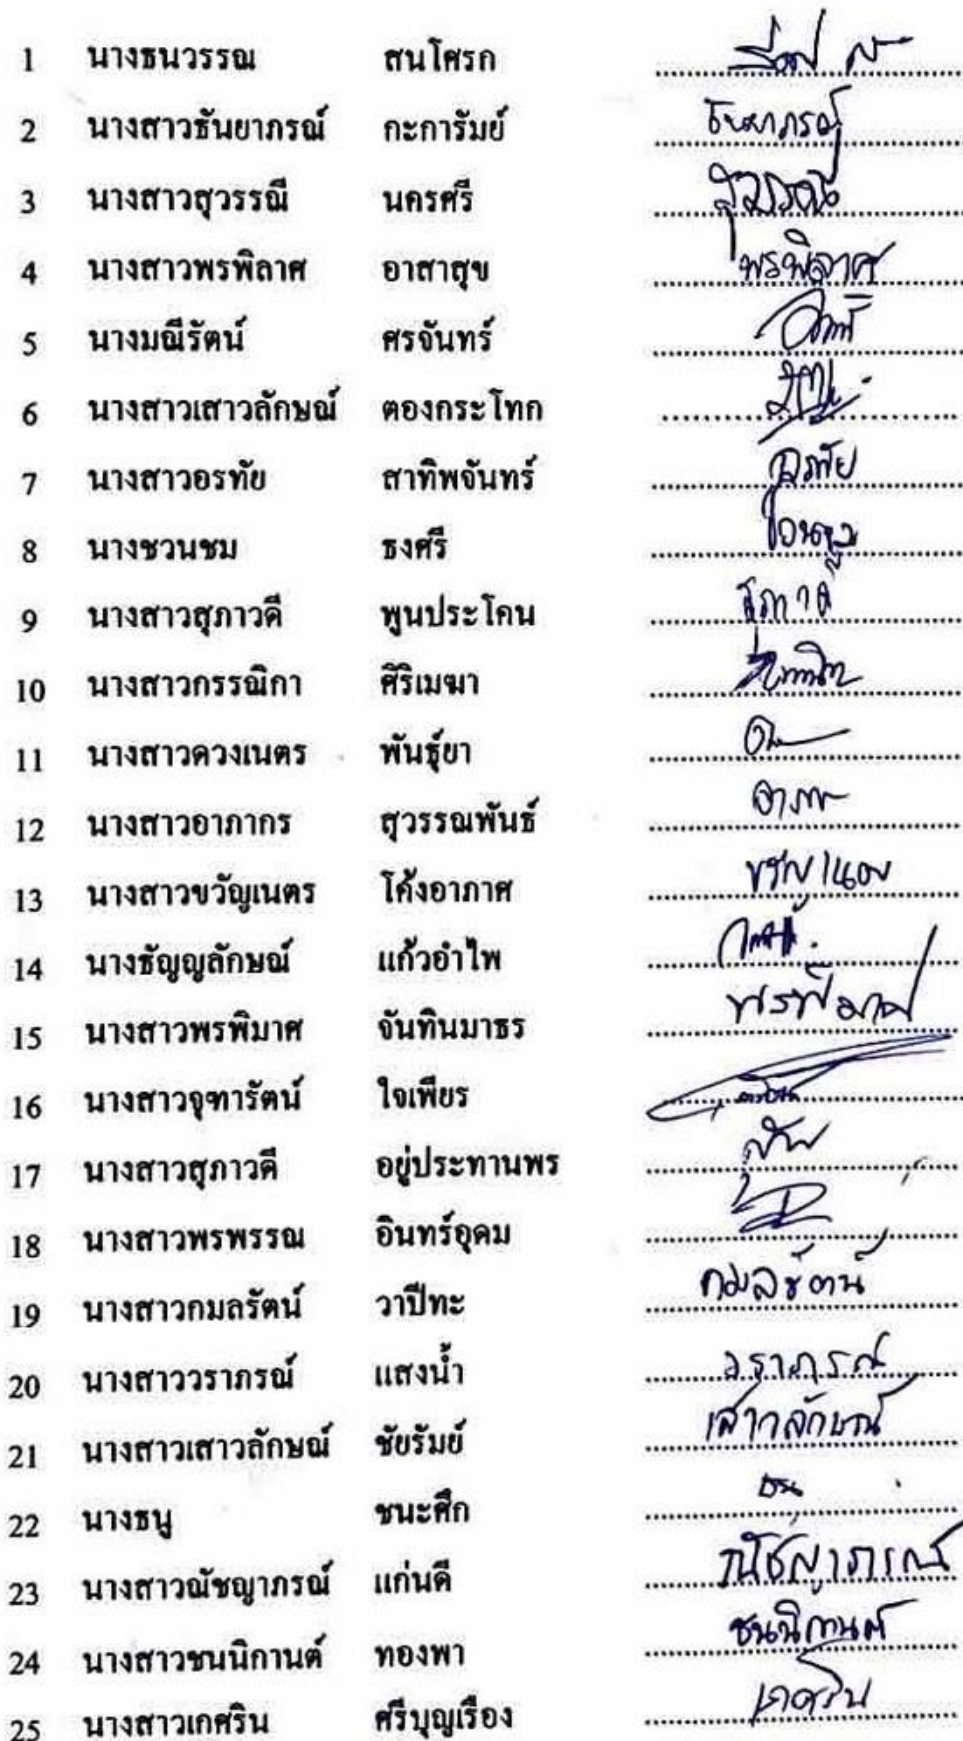 1 นางธนวรรณ สนโศรก
2 นางสาวธันยาภรณ์ กะการัมย์ ธันยาภรณ์
3 นางสาวสุวรรณี นครศรี สุวรรณี
4 นางสาวพรพิลาศ อาสาสุข พรพิลาศ
5 นางมณีรัตน์ ศรจันทร์
6 นางสาวเสาวลักษณ์ ตองกระโทก
7 นางสาวอรทัย สาทิพจันทร์ อรทัย
8 นางชวนชม ธงศรี
9 นางสาวสุภาวดี พูนประโคน
10 นางสาวกรรณิกา ศิริเมฆา
11 นางสาวดวงเนตร พันธุ์ยา
12 นางสาวอาภากร สุวรรณพันธ์
13 นางสาวขวัญเนตร โค้งอาภาศ
14 นางธัญญลักษณ์ แก้วอำไพ
15 นางสาวพรพิมาศ จันทินมาธร พรพิมาศ
16 นางสาวจุฑารัตน์ ใจเพียร
17 นางสาวสุภาวดี อยู่ประทานพร
18 นางสาวพรพรรณ อินทร์อุดม
19 นางสาวกมลรัตน์ วาปีทะ กมลรัตน์
20 นางสาววราภรณ์ แสงน้ำ วราภรณ์
21 นางสาวเสาวลักษณ์ ชัยรัมย์ เสาวลักษณ์
22 นางธนู ชนะศึก
23 นางสาวณัชญาภรณ์ แก่นดี ณัชญาภรณ์
24 นางสาวชนนิกานต์ ทองพา ชนนิกานต์
25 นางสาวเกศริน ศรีบุญเรือง เกศริน